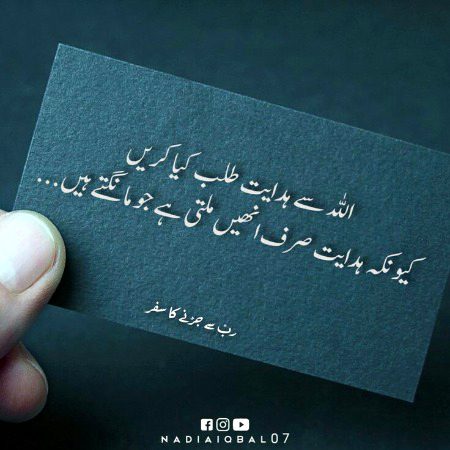 اللہ سے ہدایت طلب کیا کریں
کیونکہ ہدایت صرف انھیں ملتی ہے جو مانگتے ہیں...
ربّ سے جڑنے کا سفر
NADIAIQBAL07